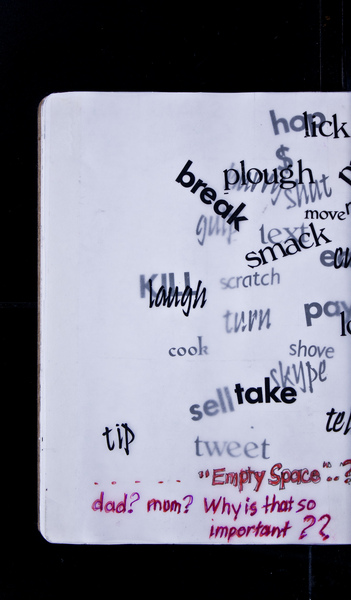 hop
lick
$
plough
hurry
shut
break
move
gulp
text
smack
scratch
kill
laugh
turn
pay
cook
shove
skype
sell
take
tip
tweet
. . . . . . "Empty Space"..?
dad? mom? Why is that so
important ??